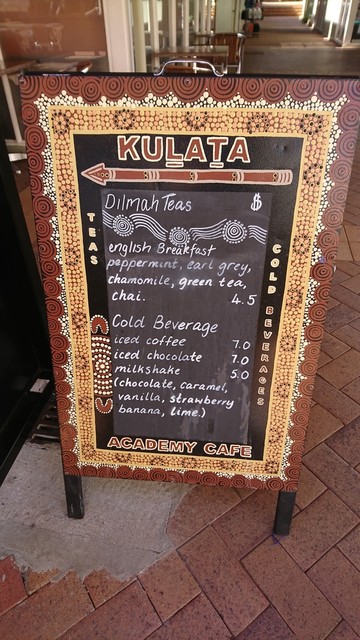 KULAṮA
Dilmah Teas $
TEAS
english Breakfast
peppermint, earl grey,
chamomile, green tea,
chai. 4.5
COLD BEVERAGES
Cold Beverage
iced coffee 7.0
iced chocolate 7.0
milkshake 5.0
(chocolate, caramel,
vanilla, strawberry
banana, lime.)
ACADEMY CAFE